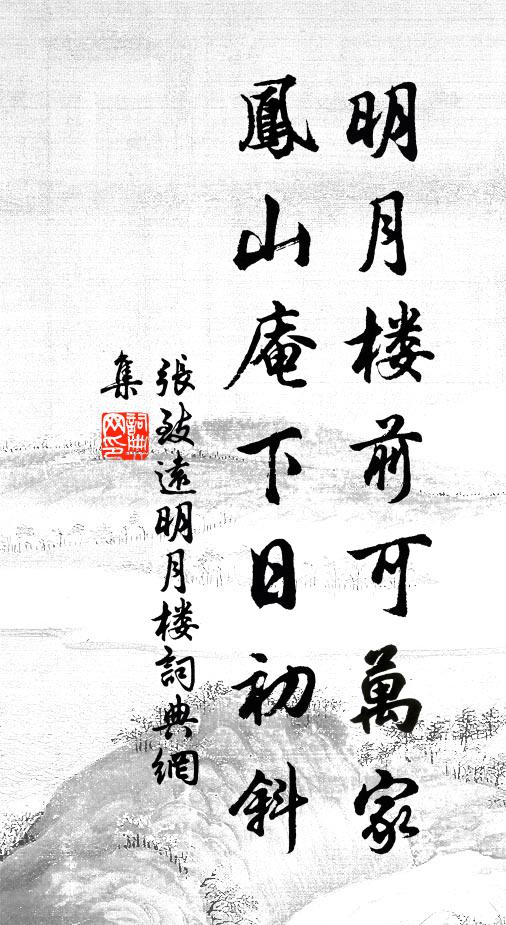 明月楼前可萬家
鳳山庵下日初斜
張致遠明月楼詞典網
集
詞典
网印